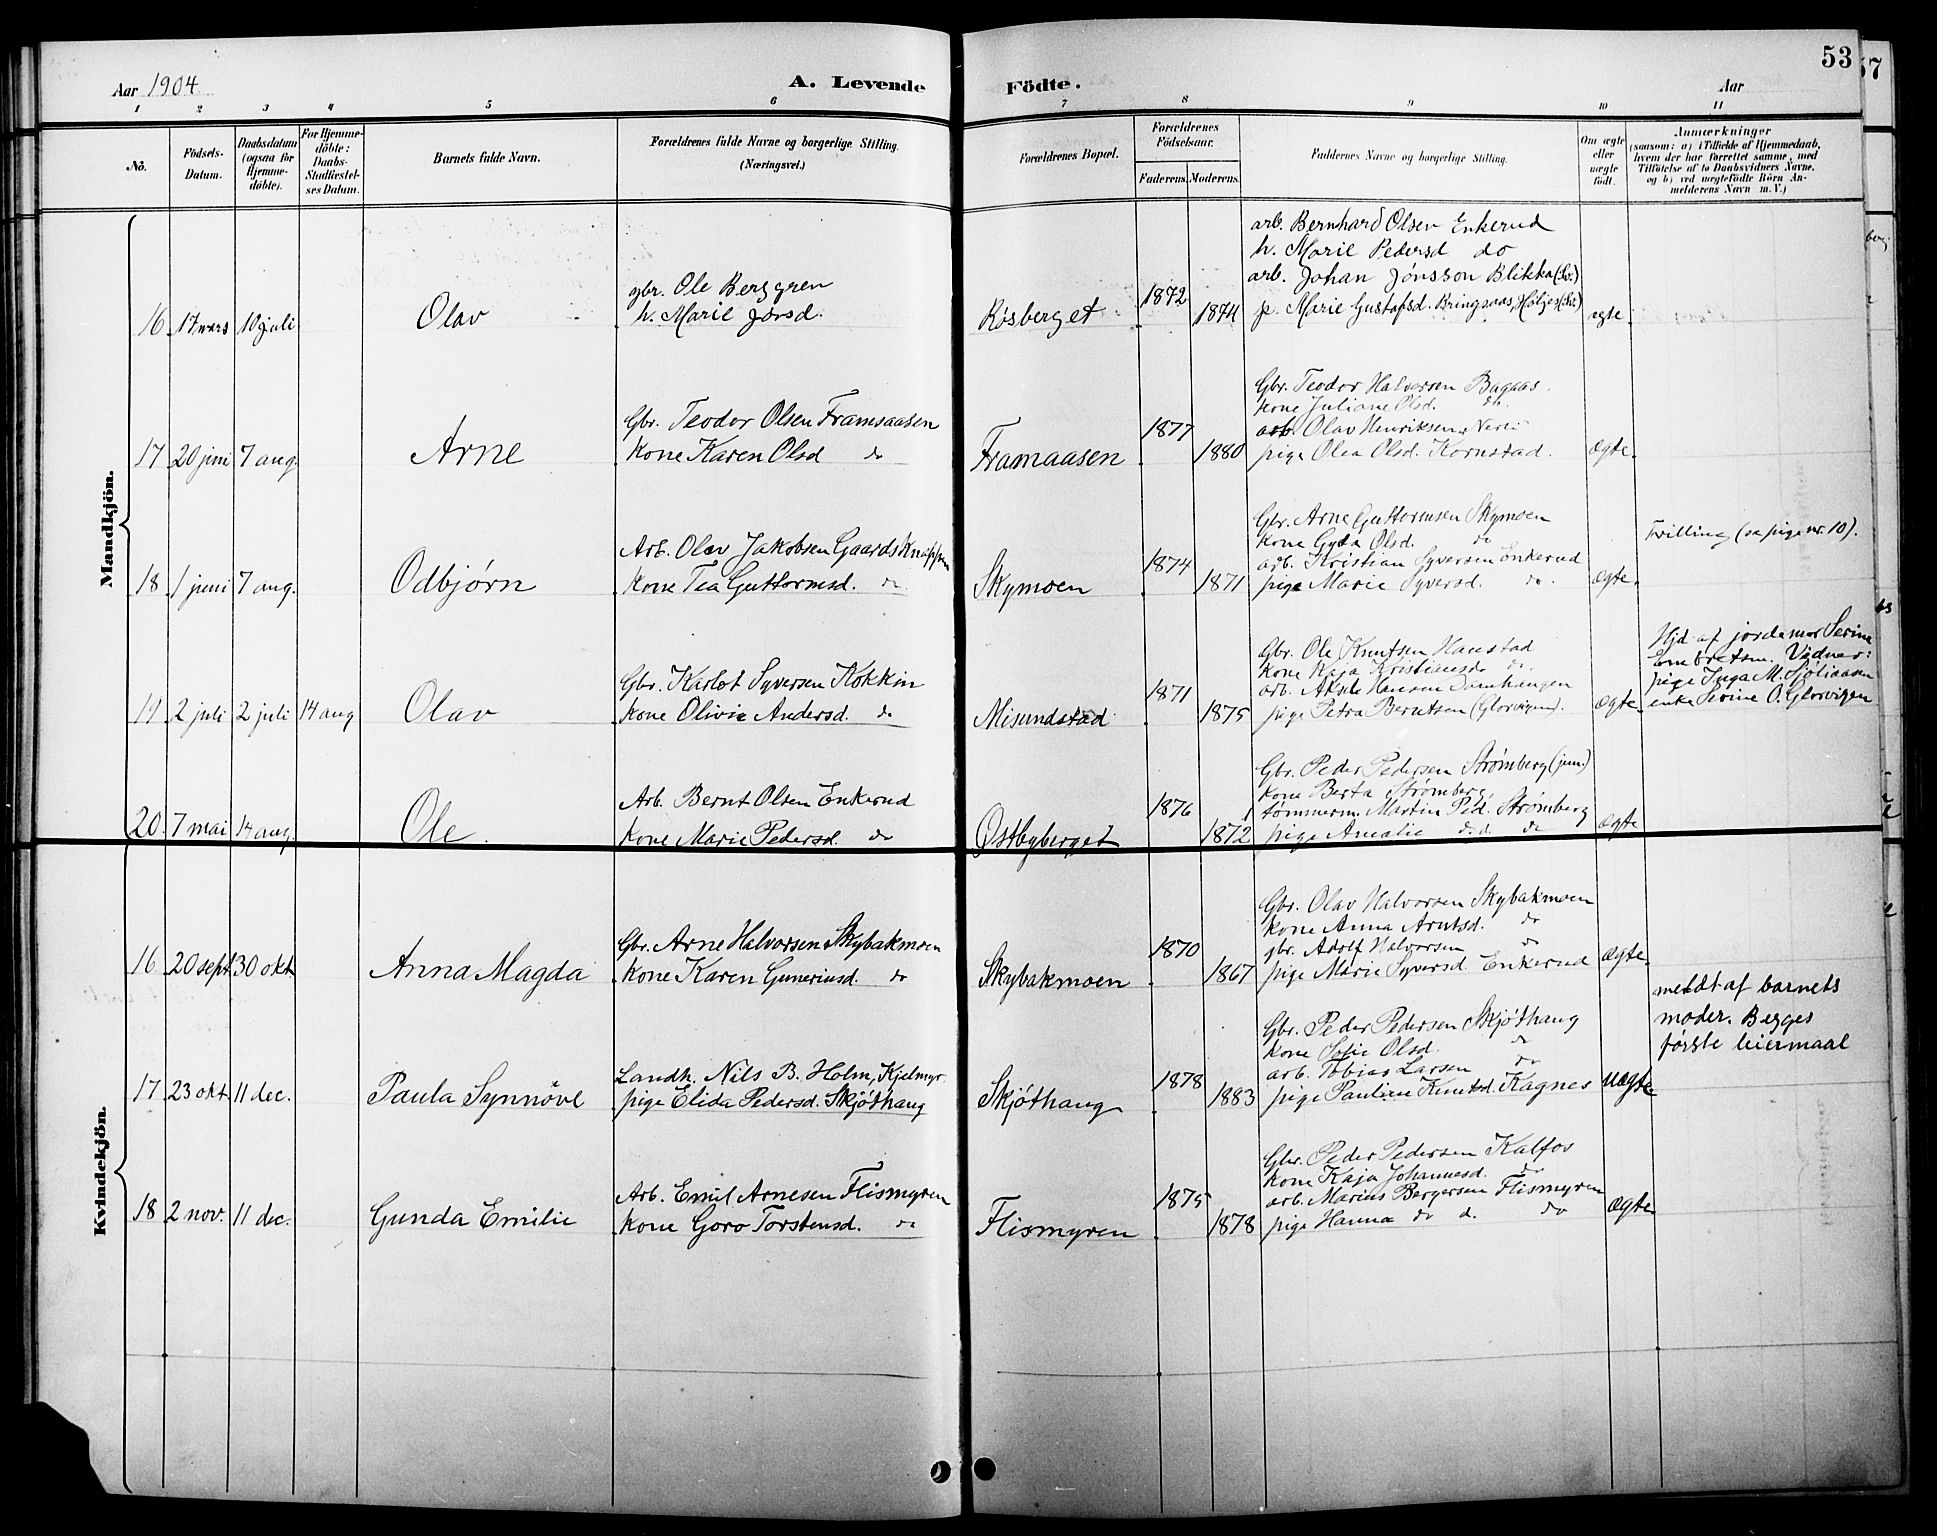 53
57
Aar 1904
A. Levende Födte.
Aar
1 2 3 4 5 6 7 8 9 10 11
No.
Födsels-Datum.
Daabsdatum (ogsaa for Hjemme-döbte).
For Hjemme-döbte: Daabs-Stadfæstel-ses Datum.
Barnets fulde Navn.
Forældrenes fulde Navne og borgerlige Stilling.
(Næringsvei.)
Forældrenes Bopæl.
Forældrenes Födselsaar.
Faderens. Moderens.
Faddernes Navne og borgerlige Stilling.
Om ægte eller uægte födt.
Anmærkninger
(saasom: a) i Tilfælde af Hjemmedaab,
hvem der har forrettet samme, med
Tilföielse af to Daabsvidners Navne,
og b) ved uægtefödte Börn An-
melderens Navn m. V.)
Mandkjön.
16 17 mars 10 juli
Olav
gbr. Ole Berggren
h. Marie Jonsd.
Røsberget
1872
1874
arb. Bernhard Olsen Enkerud
h. Marie Pedersd do
arb. Johan Jónsson Blikka (Sv.)
p. Marie Gustafsd. Bringsaas, Höljes (Sv.)
ægte.
17 20 juni 7 aug.
Arne
Gbr. Teodor Olsen Framaaasen
kone Karen Olsd do
Framaasen
1877
1880
Gbr. Teodor Halvorsen Bagaas.
kone Juliane Olsd. do.
arb. Olav Henriksen
pige Olea Olsd. Kornstad.
Ægte.
18 1 juni 7 aug.
Odbjørn
Arb. Olav Jakobsen Gaardsknappen
kone Tea Guttormsd. do.
Skymoen
1874
1871
Gbr. Arne Guttormsen Skymoen
kone Gyda Olsd. do
arb. Kristian Syversen Enkerud
pige Marie Syversd. do.
Ægte.
Tvilling (se pige nr. 10).
19 2 juli 2 juli 14 aug
Olav
Gbr. Karlot Syversen Kokkin
kone Olivie Andersd. do
Misundstad
1871
1875
Gbr. Ole Knutsen Hanestad
kone Kaja Kristiansd do.
arb. Aksel Hansen
pige Petra Berntsen (Glorvigen).
Ægte.
Hjd af jordemor Serine
Embretsen. Vidner:
pige Inga M. Sjøliaasen
enke Serine O. Glorvigen
20. 7 mai 14 aug.
Ole.
Arb. Bernt Olsen Enkerud
kone Marie Pedersd. do
Østbyberget
1876
1872
Gbr. Peder Pedersen Strømberg (jun.)
kone Berta Strømberg,
tømmerm. Martin Ped. Strømberg
pige Amalie do d. do
Ægte
Kvindekjön.
16 20 sept. 30 okt.
Anna Magda
Gbr. Arne Halvorsen Skybakmoen
kone Karen Guneriusd. do
Skybakmoen
1870
1867
Gbr. Olav Halvorsen Skybakmoen
kone Anna Arntsd. do
gbr. Adolf Halvorsen do
pige Marie Syversd. Enkerud
Ægte.
17 23 okt. 11 dec.
Paula Synnöve
Landh. Nils B. Holm, Kjelmyr
pige Elida Pedersd. Skjöthaug
Skjöthaug
1878
1883
Gbr. Peder Pedersen Skjöthaug
kone Sofie Olsd. do
arb. Tobias Larsen do
pige Pauline Knutsd. Kagnes
Uægte
meldt af barnets
moder. Begges
første leiermaal
18 2 nov. 11 dec.
Gunda Emilie
Arb. Emil Arnesen Flismyren
kone Goro Torstensd. do
Flismyren
1875
1878
Gbr. Peder Pedersen Kalfos
kone Kaja Johannesd. do
arb. Marius Bergersen Flismyren
pige Hanna do d. do
Ægte